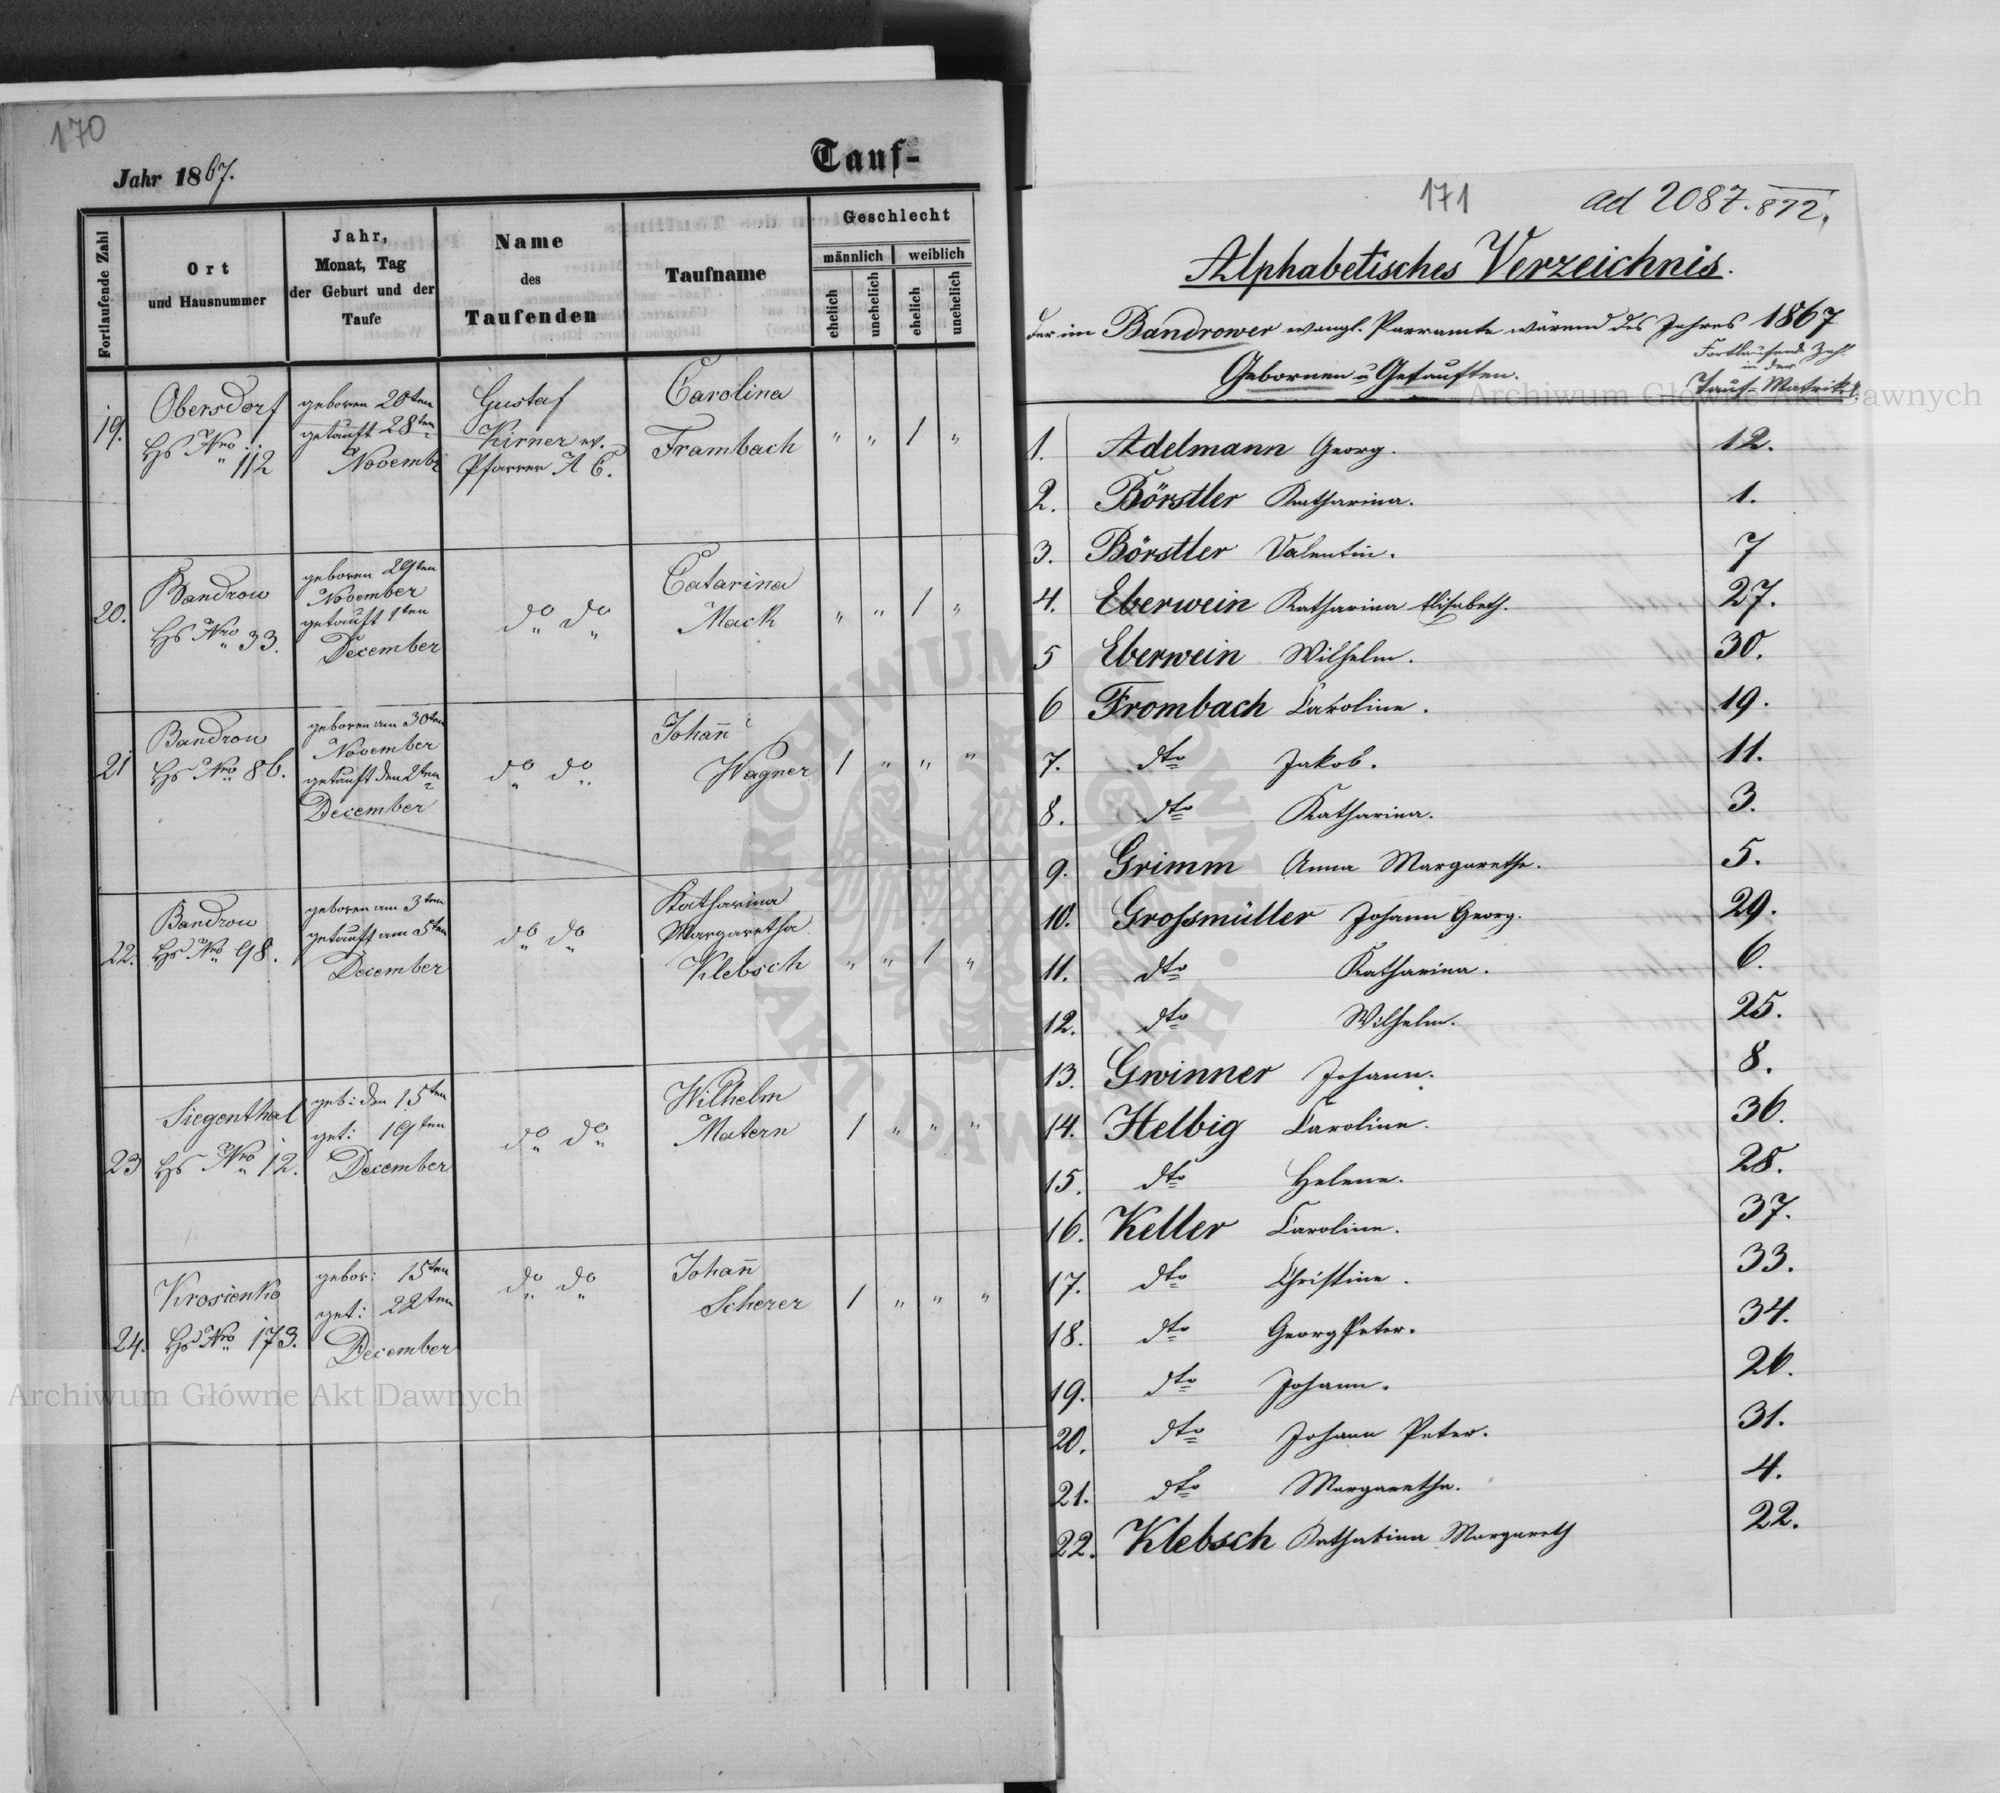 170
Jahr 1867.
Tauf-
Fortlaufende Zahl
Ort
und Hausnummer
Jahr,
Monat, Tag
der Geburt und der
Taufe
Name
des
Taufenden
Taufname
Geschlecht
männlich weiblich
ehelich unehelich ehelich unehelich
19. Obersdorf
Hs Nro 112
geboren 20ten
getauft 28ten
Novemb
Gustaf
Kirner ev.
Pfarrer A C.
Carolina
Frambach
" " 1 "
20. Bandrow
Hs Nro 33.
geboren 29ten
November
getauft 1ten
December
do do
Catarina
Mack
" " 1 "
21 Bandrow
Hs Nro 86.
geboren am 30ten
November
getauft den 2ten
December
do do
Johan̄
Wagner
1 " " "
22. Bandrow
Hs Nro 98.
geboren am 3ten
getauft am 5ten
December
do do
Katharina
Margaretha
Klebsch
" " 1 "
23 Siegenthal
Hs Nro 12.
geb: den 15ten
get: 19ten
December
do do
Wilhelm
Matern
1 " " "
24. Krosienko
Hs Nro 173.
gebor: 15ten
get: 22ten
December
do do
Johan̄
Scherer
1 " " "
171
ad 2087.872.
Alphabetisches Verzeichnis.
der im Bandrower evangl. Parramte wärend des Jahres 1867
Gebornen u Getauften.
Fortlaufende Zahl
in der
Tauf-Matrikel
1. Adelmann Georg. 12.
2. Börstler Katharina. 1.
3. Börstler Valentin. 7
4. Eberwein Katharina Elisabeth. 27.
5 Eberwein Wilhelm. 30.
6 Frombach Caroline. 19.
7. dto Jakob. 11.
8. dto Katharina. 3.
9. Grimm Anna Margarethe. 5.
10. Grossmüller Johann Georg. 29.
11. dto Katharina. 6.
12. dto Wilhelm. 25.
13. Gwinner Johann. 8.
14. Helbig Caroline. 36.
15. dto Helene. 28.
16. Keller Caroline. 37.
17. dto Christine. 33.
18. dto Georg Peter. 34.
19. dto Johann. 26.
20. dto Johann Peter. 31.
21. dto Margaretha. 4.
22. Klebsch Katharina Margareth 22.
Archiwum Główne Akt Dawnych
Archiwum Główne Akt Dawnych
ARCHIWUM GŁÓWNE AKT DAWNYCH